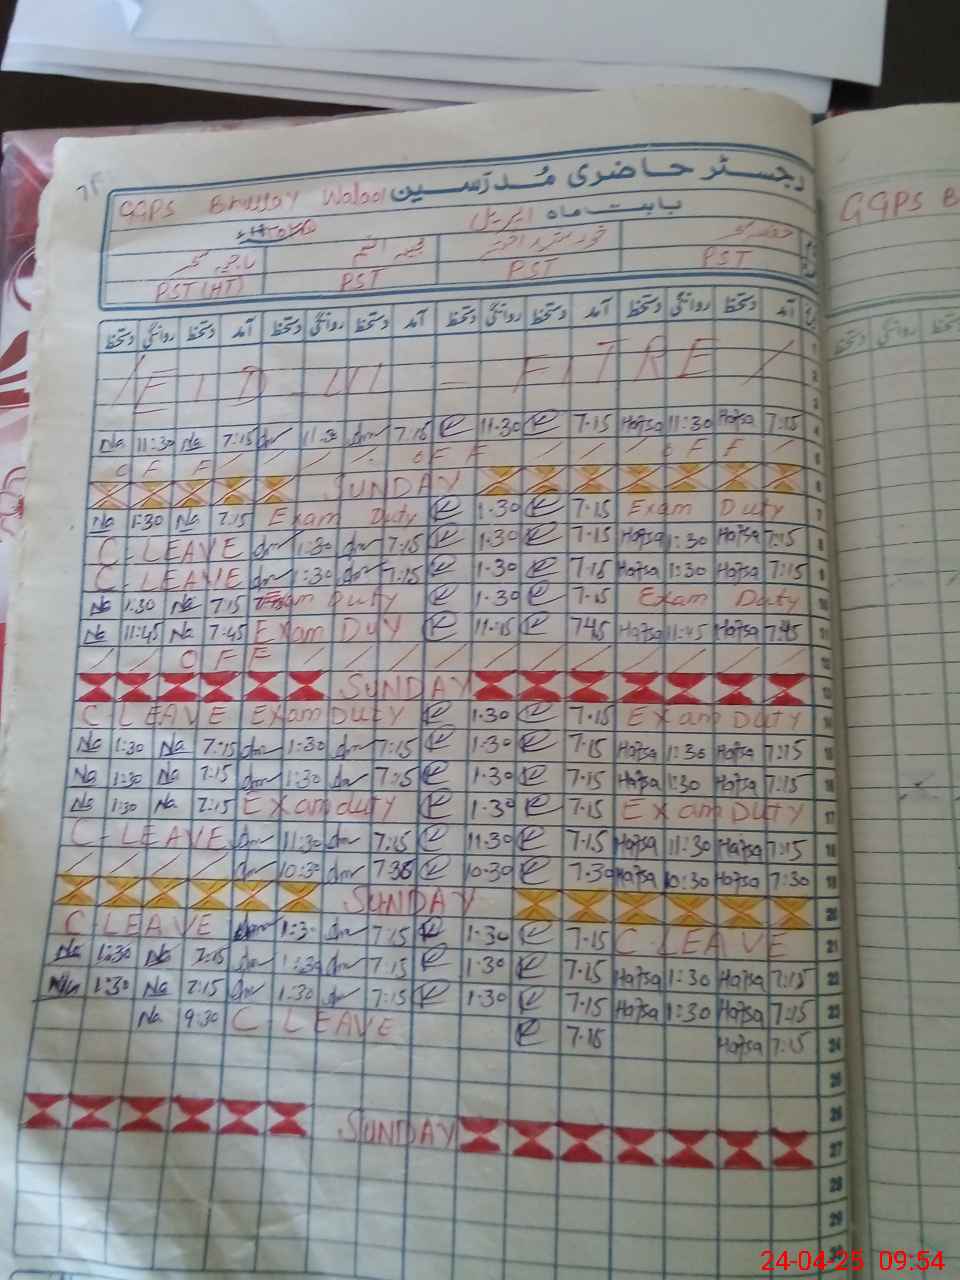 رجسٹر حاضری مُدرّسین
GGPS
بابت ماہ اپریل
GGPS B
PST PST PST PST (HT)
آمد دستخط روانگی دستخط آمد دستخط روانگی دستخط آمد دستخط روانگی دستخط آمد دستخط روانگی دستخط
دستخط روانگی دستخط
1
EID-UL-FITRE
2
3
Na 11:30 Na 7:15 11:30 7:15 11.30 7.15 Hafsa 11:30 Hafsa 7:15 4
OFF OFF OFF 5
SUNDAY 6
Na 1:30 Na 7:15 Exam Duty 1.30 7.15 Exam Duty 7
C-LEAVE 1:30 7:15 1.30 7.15 Hafsa 1:30 Hafsa 7:15 8
C-LEAVE 1:30 7:15 1.30 7.15 Hafsa 1:30 Hafsa 7:15 9
Na 1:30 Na 7:15 Exam Duty 1.30 7.15 Exam Duty 10
Na 11:45 Na 7:45 Exam DUY 11:45 7.45 Hafsa 11:45 Hafsa 7:45 11
OFF 12
SUNDAY 13
C-LEAVE Exam DUTY 1.30 7.15 Exam DUTY 14
Na 1:30 Na 7:15 1:30 7:15 1.30 7.15 Hafsa 1:30 Hafsa 7:15 15
Na 1:30 Na 7:15 1:30 7:15 1.30 7.15 Hafsa 1:30 Hafsa 7:15 16
Na 1:30 Na 7:15 Exam duty 1.30 7.15 Exam DUTY 17
C-LEAVE 11:30 7:15 11.30 7.15 Hafsa 11:30 Hafsa 7:15 18
10:30 7:30 10.30 7.30 Hafsa 10:30 Hafsa 7:30 19
SUNDAY 20
C LEAVE 1:30 7:15 1.30 7.15 C-LEAVE 21
Na 1:30 Na 7:15 1:30 7:15 1.30 7.15 Hafsa 1:30 Hafsa 7:15 22
Na 1:30 Na 7:15 1:30 7:15 1.30 7.15 Hafsa 1:30 Hafsa 7:15 23
Na 9:30 C-LEAVE 7.15 Hafsa 7:15 24
25
26
SUNDAY 27
28
29
30
24-04-25 09:54